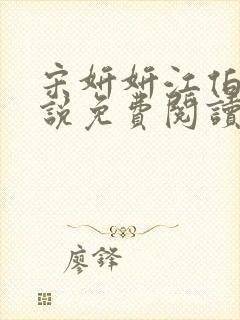 宋妍妍江伯
說免費閱讀
廖鋒